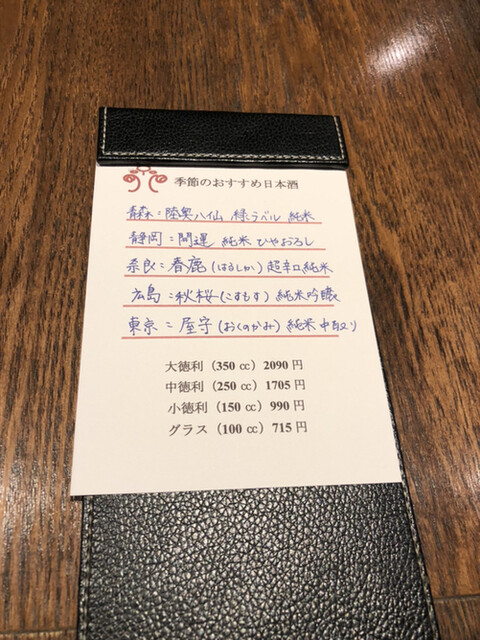 季節のおすすめ日本酒
青森:陸奥八仙 緑ラベル 純米
静岡:開運 純米 ひやおろし
奈良:春鹿(はるしか)超辛口純米
広島:秋桜(こすもす)純米吟醸
東京:屋守(おくのかみ)純米 中取り
大徳利(350 cc)2090 円
中徳利(250 cc)1705 円
小徳利(150 cc)990 円
グラス(100 cc)715 円